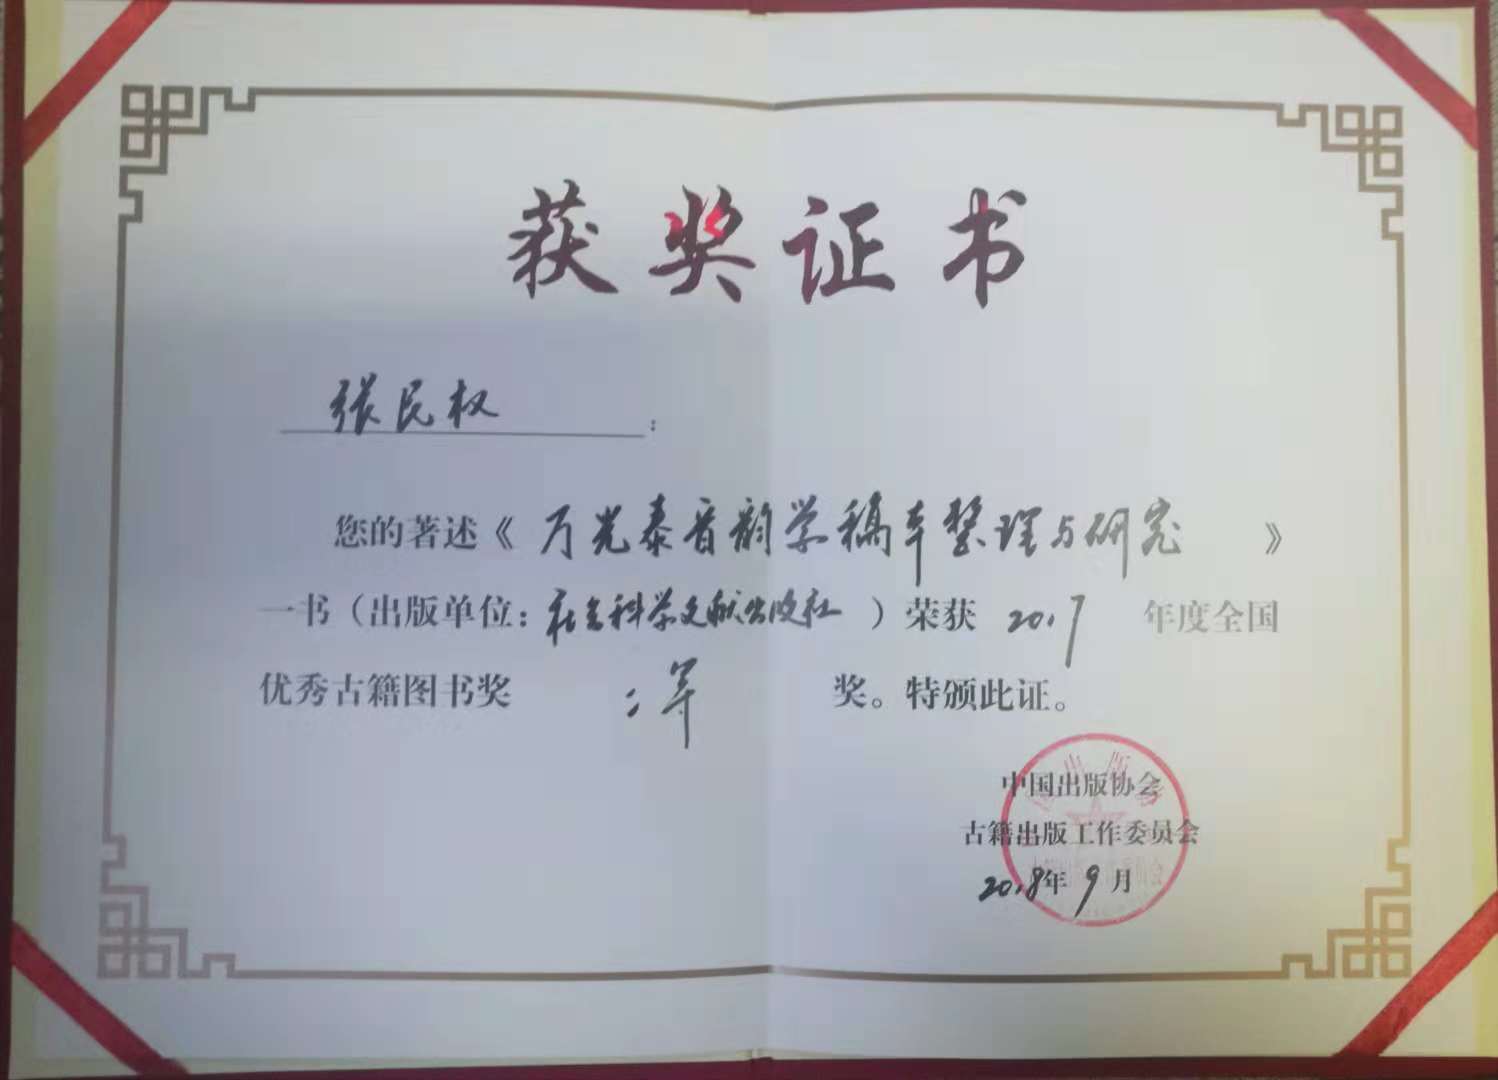 获奖证书
张民权：
您的著述《万光泰音韵学稿本整理与研究》
一书（出版单位：社会科学文献出版社）荣获 2017 年度全国
优秀古籍图书奖 二等 奖。特颁此证。
中国出版协会
古籍出版工作委员会
2018年9月